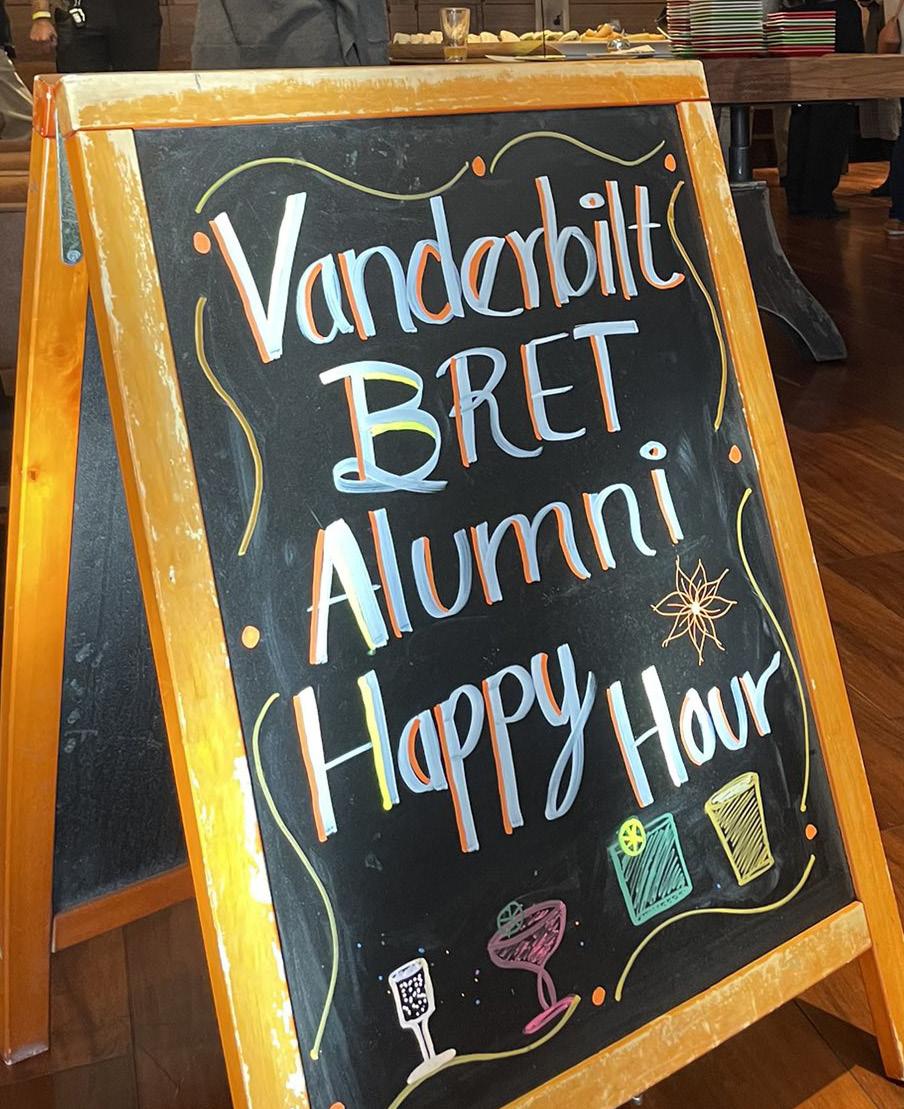 Vanderbilt
BRET
Alumni
Happy Hour